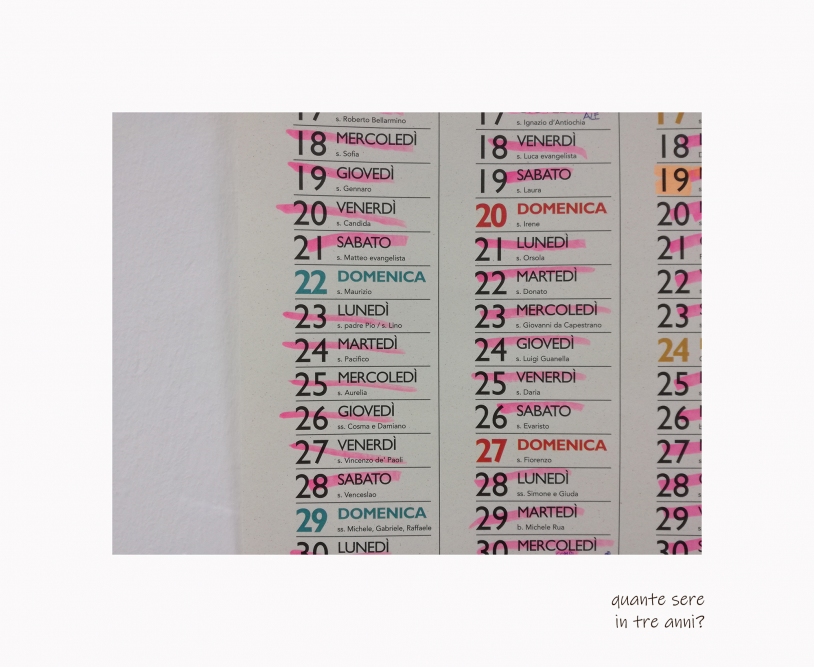 17
s. Roberto Bellarmino
18 MERCOLEDÌ
s. Sofia
19 GIOVEDÌ
s. Gennaro
20 VENERDÌ
s. Candida
21 SABATO
s. Matteo evangelista
22 DOMENICA
s. Maurizio
23 LUNEDÌ
s. padre Pio / s. Lino
24 MARTEDÌ
s. Pacifico
25 MERCOLEDÌ
s. Aurelia
26 GIOVEDÌ
ss. Cosma e Damiano
27 VENERDÌ
s. Vincenzo de' Paoli
28 SABATO
s. Venceslao
29 DOMENICA
ss. Michele, Gabriele, Raffaele
30 LUNEDÌ
17
s. Ignazio d'Antiochia
18 VENERDÌ
s. Luca evangelista
19 SABATO
s. Laura
20 DOMENICA
s. Irene
21 LUNEDÌ
s. Orsola
22 MARTEDÌ
s. Donato
23 MERCOLEDÌ
s. Giovanni da Capestrano
24 GIOVEDÌ
s. Luigi Guanella
25 VENERDÌ
s. Daria
26 SABATO
s. Evaristo
27 DOMENICA
s. Fiorenzo
28 LUNEDÌ
ss. Simone e Giuda
29 MARTEDÌ
b. Michele Rua
30 MERCOLEDÌ
17
18
19
20
21
22
23
24
25
26
27
28
29
30
quante sere
in tre anni?